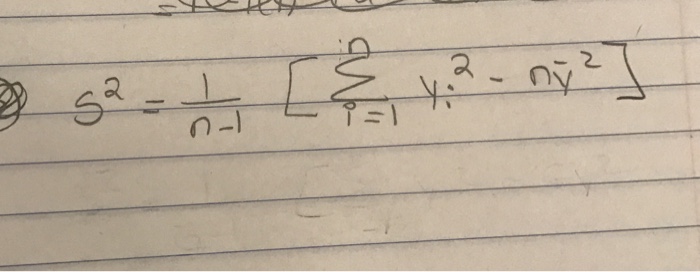 S² = 1/(n-1) [ Σ_{i=1}^{n} yᵢ² - nȳ² ]